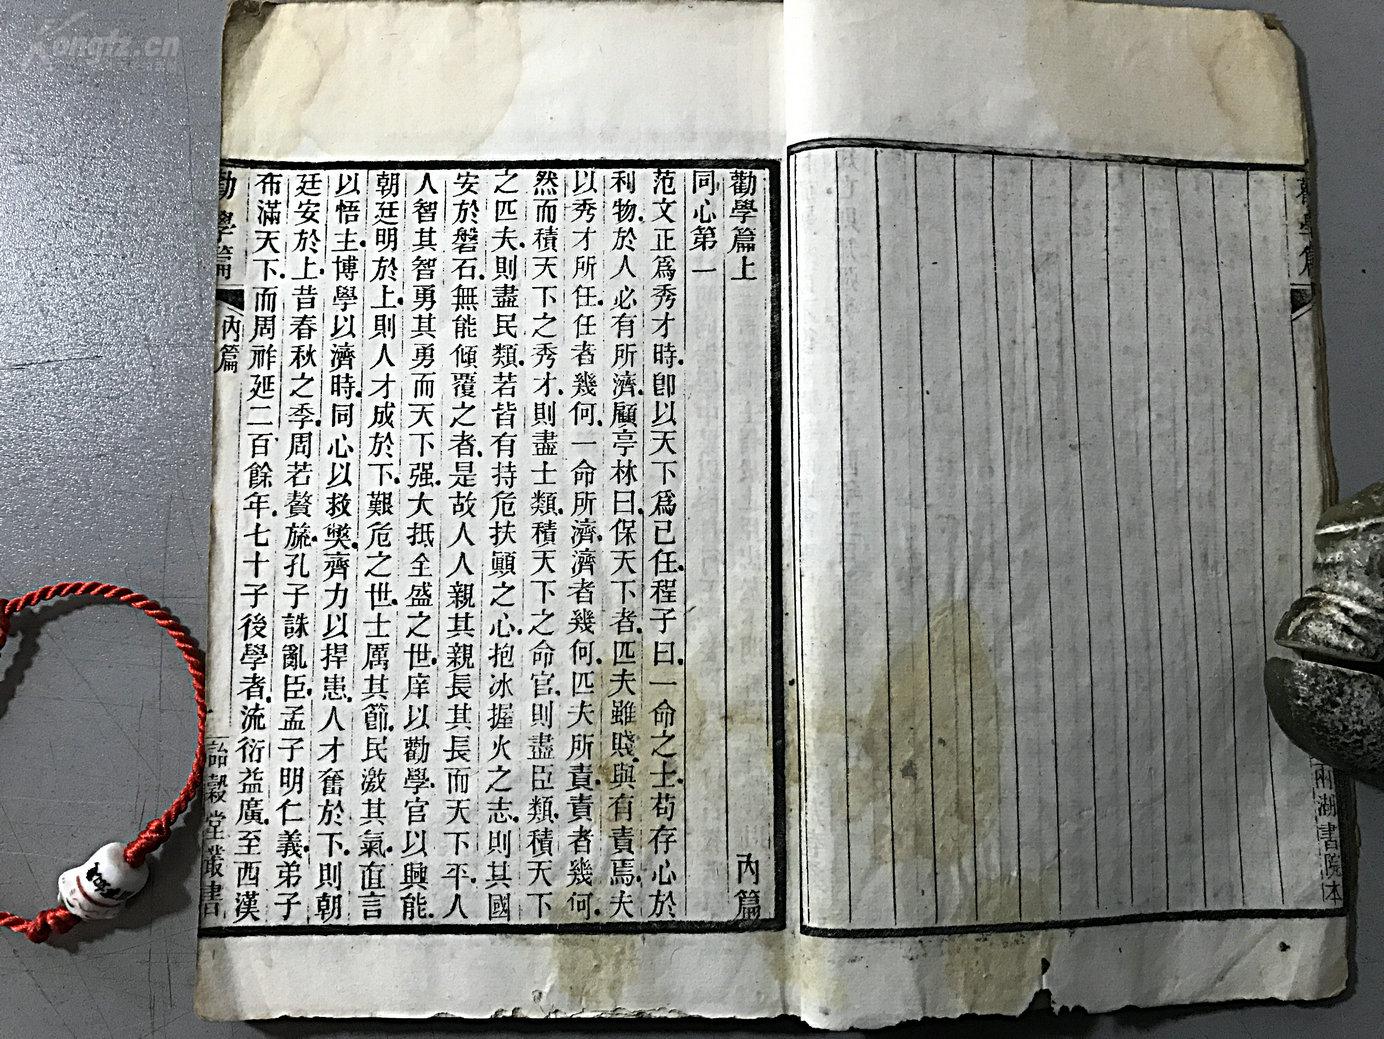 勸學篇上
內篇
同心第一
范文正爲秀才時卽以天下爲己任程子曰一命之士苟存心於
利物於人必有所濟顧亭林曰保天下者匹夫雖賤與有責焉夫
以秀才所任任者幾何一命所濟濟者幾何匹夫所責責者幾何
然而積天下之秀才則盡士類積天下之命官則盡臣類積天下
之匹夫則盡民類若皆有持危扶顚之心抱冰握火之志則其國
安於磐石無能傾覆之者是故人人親其親長其長而天下平人
人智其智勇其勇而天下强大抵全盛之世庠以勸學官以興能
朝廷明於上則人才成於下艱危之世士厲其節民激其氣直言
以悟主博學以濟時同心以救獘齊力以捍患人才奮於下則朝
廷安於上昔春秋之季周若贅旒孔子誅亂臣孟子明仁義弟子
布滿天下而周祚延二百餘年七十子後學者流衍益廣至西漢
勸學篇
內篇
一
堂叢書
兩湖書院本
Kongfz.cn